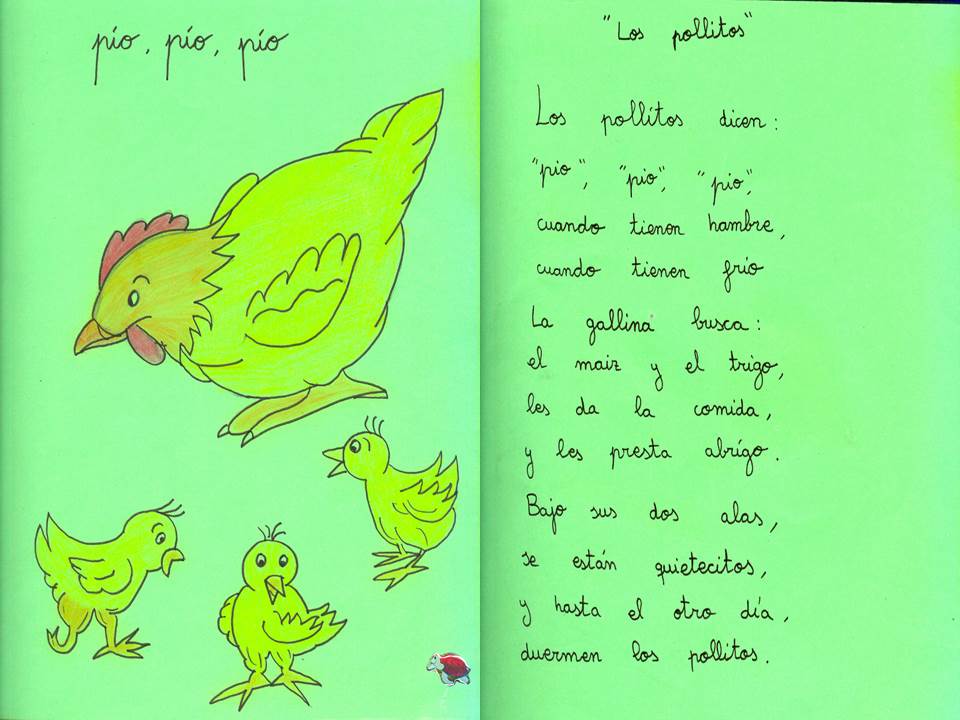 pío, pío, pío
"Los pollitos"
Los pollitos dicen:
"pio", "pio", "pio",
cuando tienen hambre,
cuando tienen frío
La gallina busca:
el maiz y el trigo,
les da la comida,
y les presta abrígo.
Bajo sus dos alas,
se están quietecitos,
y hasta el otro día,
duermen los pollitos.